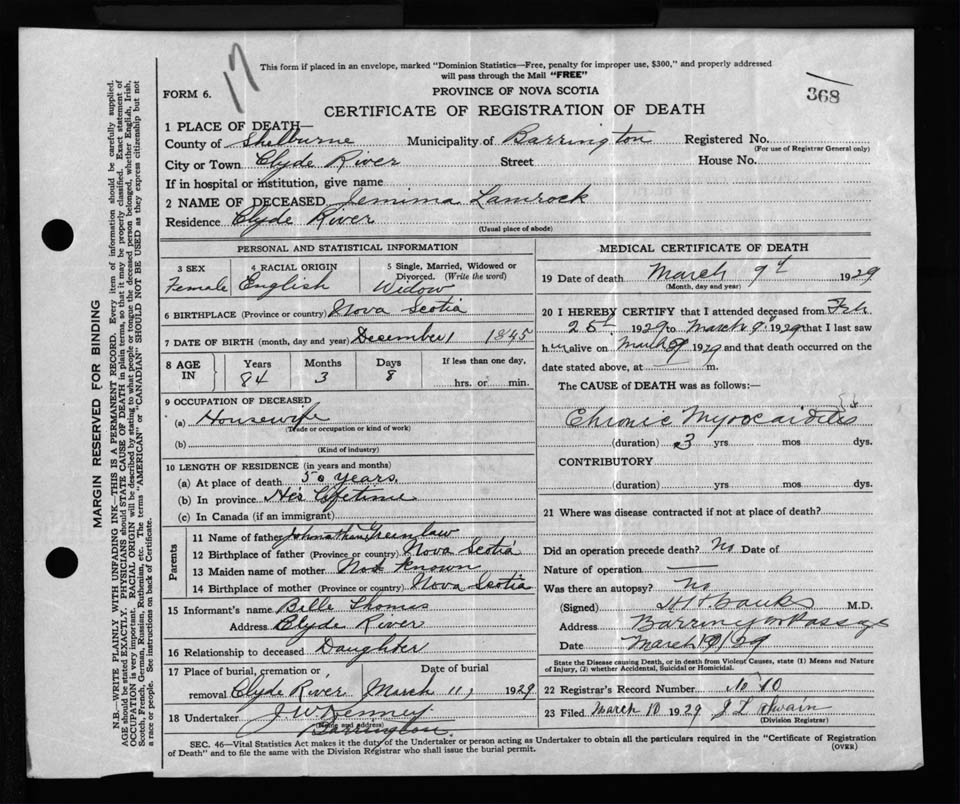 17
This form if placed in an envelope, marked "Dominion Statistics—Free, penalty for improper use, $300," and properly addressed
will pass through the Mail "FREE"
FORM 6.
PROVINCE OF NOVA SCOTIA
368
CERTIFICATE OF REGISTRATION OF DEATH
1 PLACE OF DEATH—
County of Shelburne Municipality of Barrington Registered No.
(For use of Registrar General only)
City or Town Clyde River Street House No.
If in hospital or institution, give name
2 NAME OF DECEASED Jemima Lamrock
Residence Clyde River
(Usual place of abode)
PERSONAL AND STATISTICAL INFORMATION
3 SEX 4 RACIAL ORIGIN 5 Single, Married, Widowed or
Divorced. (Write the word)
Female English Widow
6 BIRTHPLACE (Province or country) Nova Scotia
7 DATE OF BIRTH (month, day and year) December 1 1845
8 AGE IN Years Months Days If less than one day,
84 3 8 hrs. or min.
9 OCCUPATION OF DECEASED
(a) Housewife
(Trade or occupation or kind of work)
(b)
(Kind of industry)
10 LENGTH OF RESIDENCE (in years and months)
(a) At place of death 50 years
(b) In province Her Lifetime
(c) In Canada (if an immigrant)
Parents
11 Name of father Johnathan Greenlaw
12 Birthplace of father (Province or country) Nova Scotia
13 Maiden name of mother Not Known
14 Birthplace of mother (Province or country) Nova Scotia
15 Informant's name Bille Thomas
Address Clyde River
16 Relationship to deceased Daughter
17 Place of burial, cremation or Date of burial
removal Clyde River March 11, 1929
18 Undertaker J. W. Kenney
(Name and address)
Barrington
MEDICAL CERTIFICATE OF DEATH
19 Date of death March 9th 1929
(Month, day and year)
20 I HEREBY CERTIFY that I attended deceased from Feb
25th 1929 to March 9th 1929 that I last saw
her alive on March 9 1929 and that death occurred on the
date stated above, at m.
The CAUSE of DEATH was as follows:
Chronic Myocarditis
(duration) 3 yrs mos dys.
CONTRIBUTORY
(duration) yrs mos dys.
21 Where was disease contracted if not at place of death?
Did an operation precede death? No Date of
Nature of operation —
Was there an autopsy? No
(Signed) Banks M.D.
Address Barrington Passage
Date March 9/29
State the Disease causing Death, or in death from Violent Causes, state (1) Means and Nature
of Injury, (2) whether Accidental, Suicidal or Homicidal.
22 Registrar's Record Number No 10
23 Filed March 10 1929 J L Swain
(Division Registrar)
SEC. 46—Vital Statistics Act makes it the duty of the Undertaker or person acting as Undertaker to obtain all the particulars required in the "Certificate of Registration
of Death" and to file the same with the Division Registrar who shall issue the burial permit.
(OVER)
MARGIN RESERVED FOR BINDING
N.B.—WRITE PLAINLY WITH UNFADING INK—THIS IS A PERMANENT RECORD. Every item of information should be carefully supplied.
AGE should be stated EXACTLY. PHYSICIANS should STATE CAUSE OF DEATH in plain terms, so that it may be properly classified. Exact statement of
OCCUPATION is very important. RACIAL ORIGIN will be described by stating to what people or tongue the deceased person belonged, whether English, Irish,
Scotch, French, German, Russian, Ruthenian, etc. The terms "AMERICAN" or "CANADIAN" SHOULD NOT BE USED as they express citizenship but not
a race or people. See instructions on back of Certificate.